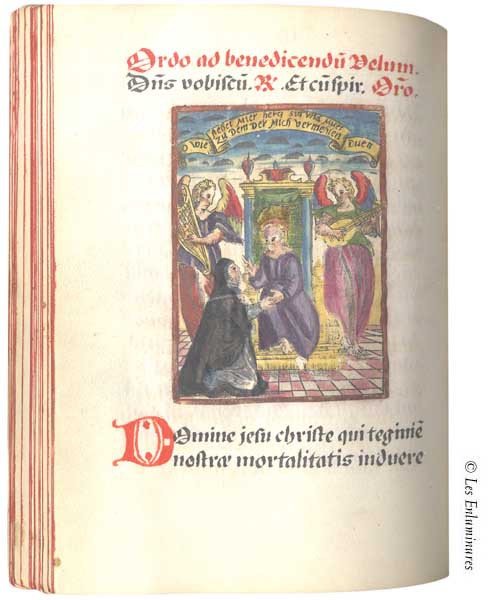 Ordo ad benedicendū Velum.
Dn̄s vobiscū. ℟. Et cū spir. Orō.
O wie
zu Dem Der Mich vermehlen
Duen
Domine jesu christe qui tegimē
nostræ mortalitatis induere
© Les Enluminures